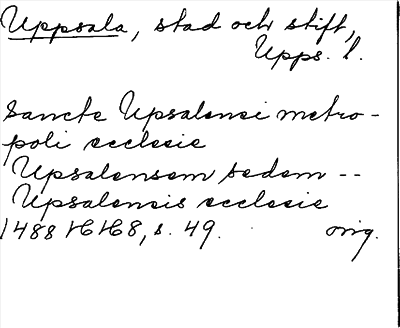 Uppsala, stad och stift,
Upps. l.
Sancte Upsalensi metro-
poli ecclesie
Upsalensem sedem --
Upsalensis ecclesie
1488 16/6 8, s. 49. orig.